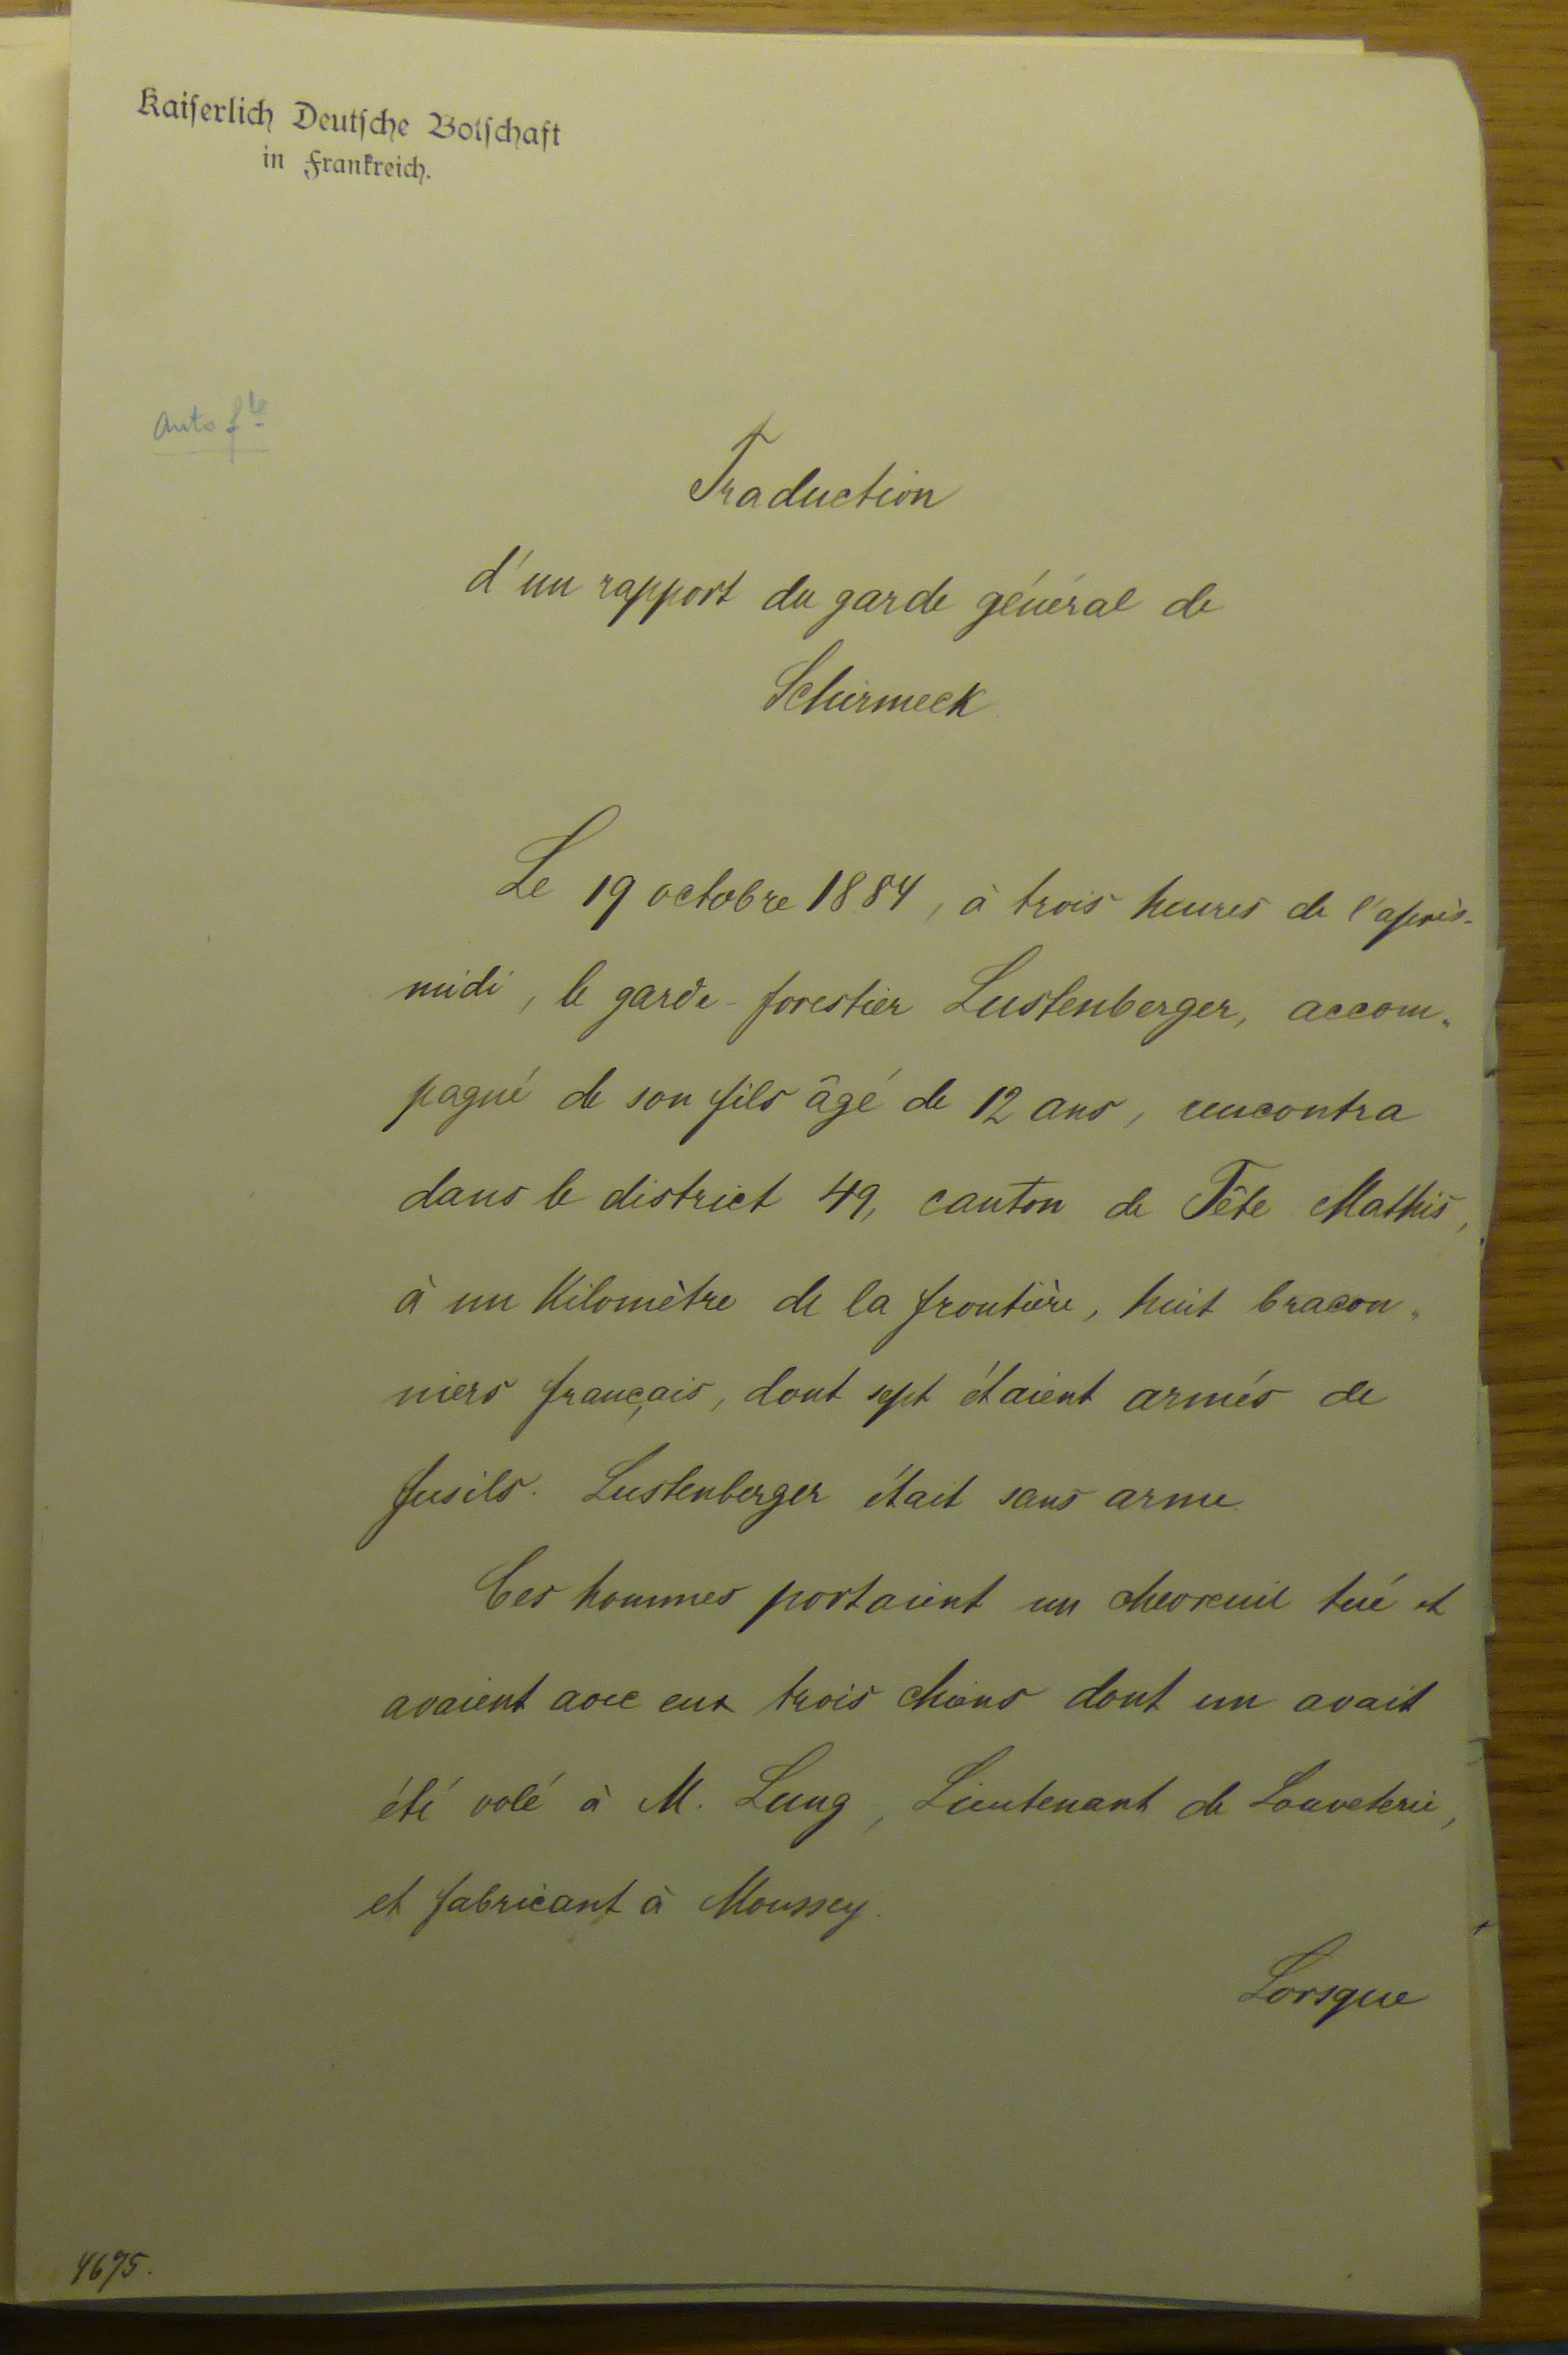 Kaiserlich Deutsche Botschaft
in Frankreich.
Traduction
d'un rapport du garde général de
Schirmeck
Le 19 octobre 1884, à trois heures de l'après-
midi, le garde-forestier Lustenberger, accom-
pagné de son fils âgé de 12 ans, rencontra
dans le district 49, canton de Tête Mathis,
à un Kilomètre de la frontière, huit bracon-
niers français, dont sept étaient armés de
fusils. Lustenberger était sans arme.
Ces hommes portaient un chevreuil tué et
avaient avec eux trois chiens dont un avait
été volé à M. Lung, Lieutenant de Louveterie,
et fabricant à Moussey.
Lorsque
4675.